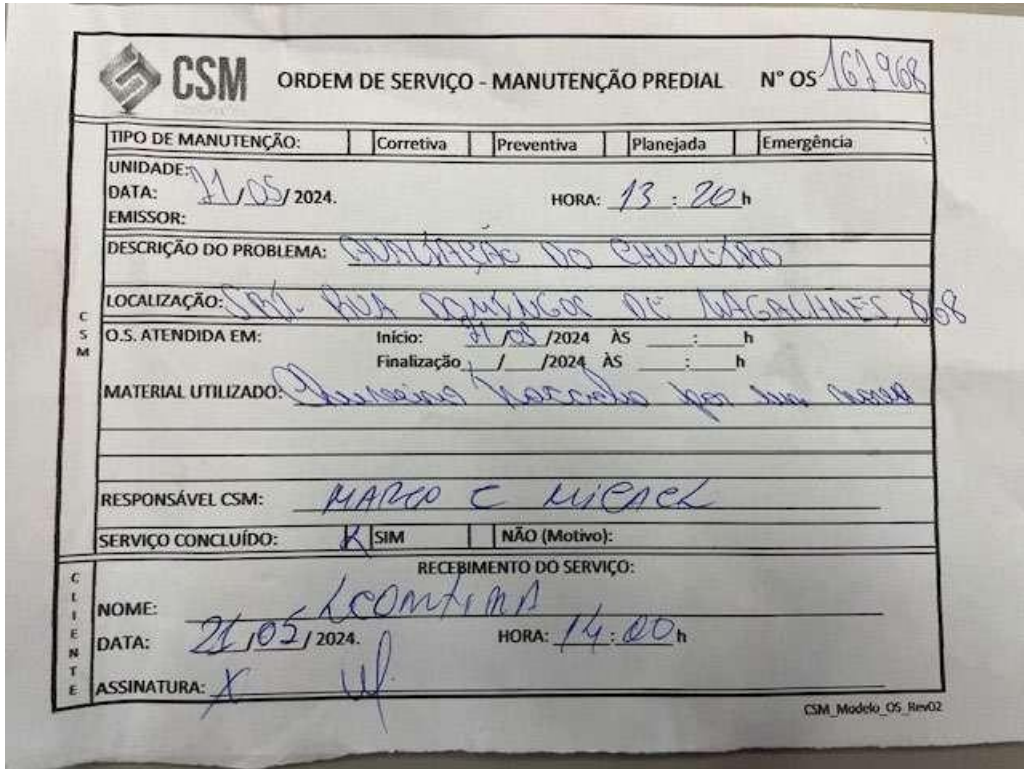 CSM ORDEM DE SERVIÇO - MANUTENÇÃO PREDIAL N° OS 167968
TIPO DE MANUTENÇÃO: Corretiva Preventiva Planejada Emergência
UNIDADE:
DATA: 21/05/2024. HORA: 13:20 h
EMISSOR:
DESCRIÇÃO DO PROBLEMA: DO
LOCALIZAÇÃO: RUA DOMINGOS DE MAGALHAES, 868
CSM
O.S. ATENDIDA EM: Início: 21/05/2024 ÀS ___:___h
Finalização __/__/2024 ÀS ___:___h
MATERIAL UTILIZADO: Chuveiro por um novo
RESPONSÁVEL CSM: MARCO E MICAEL
SERVIÇO CONCLUÍDO: X SIM NÃO (Motivo):
CLIENTE
RECEBIMENTO DO SERVIÇO:
NOME:
DATA: 21/05/2024. HORA: 14:00 h
ASSINATURA: X
CSM_Modelo_OS_Rev02